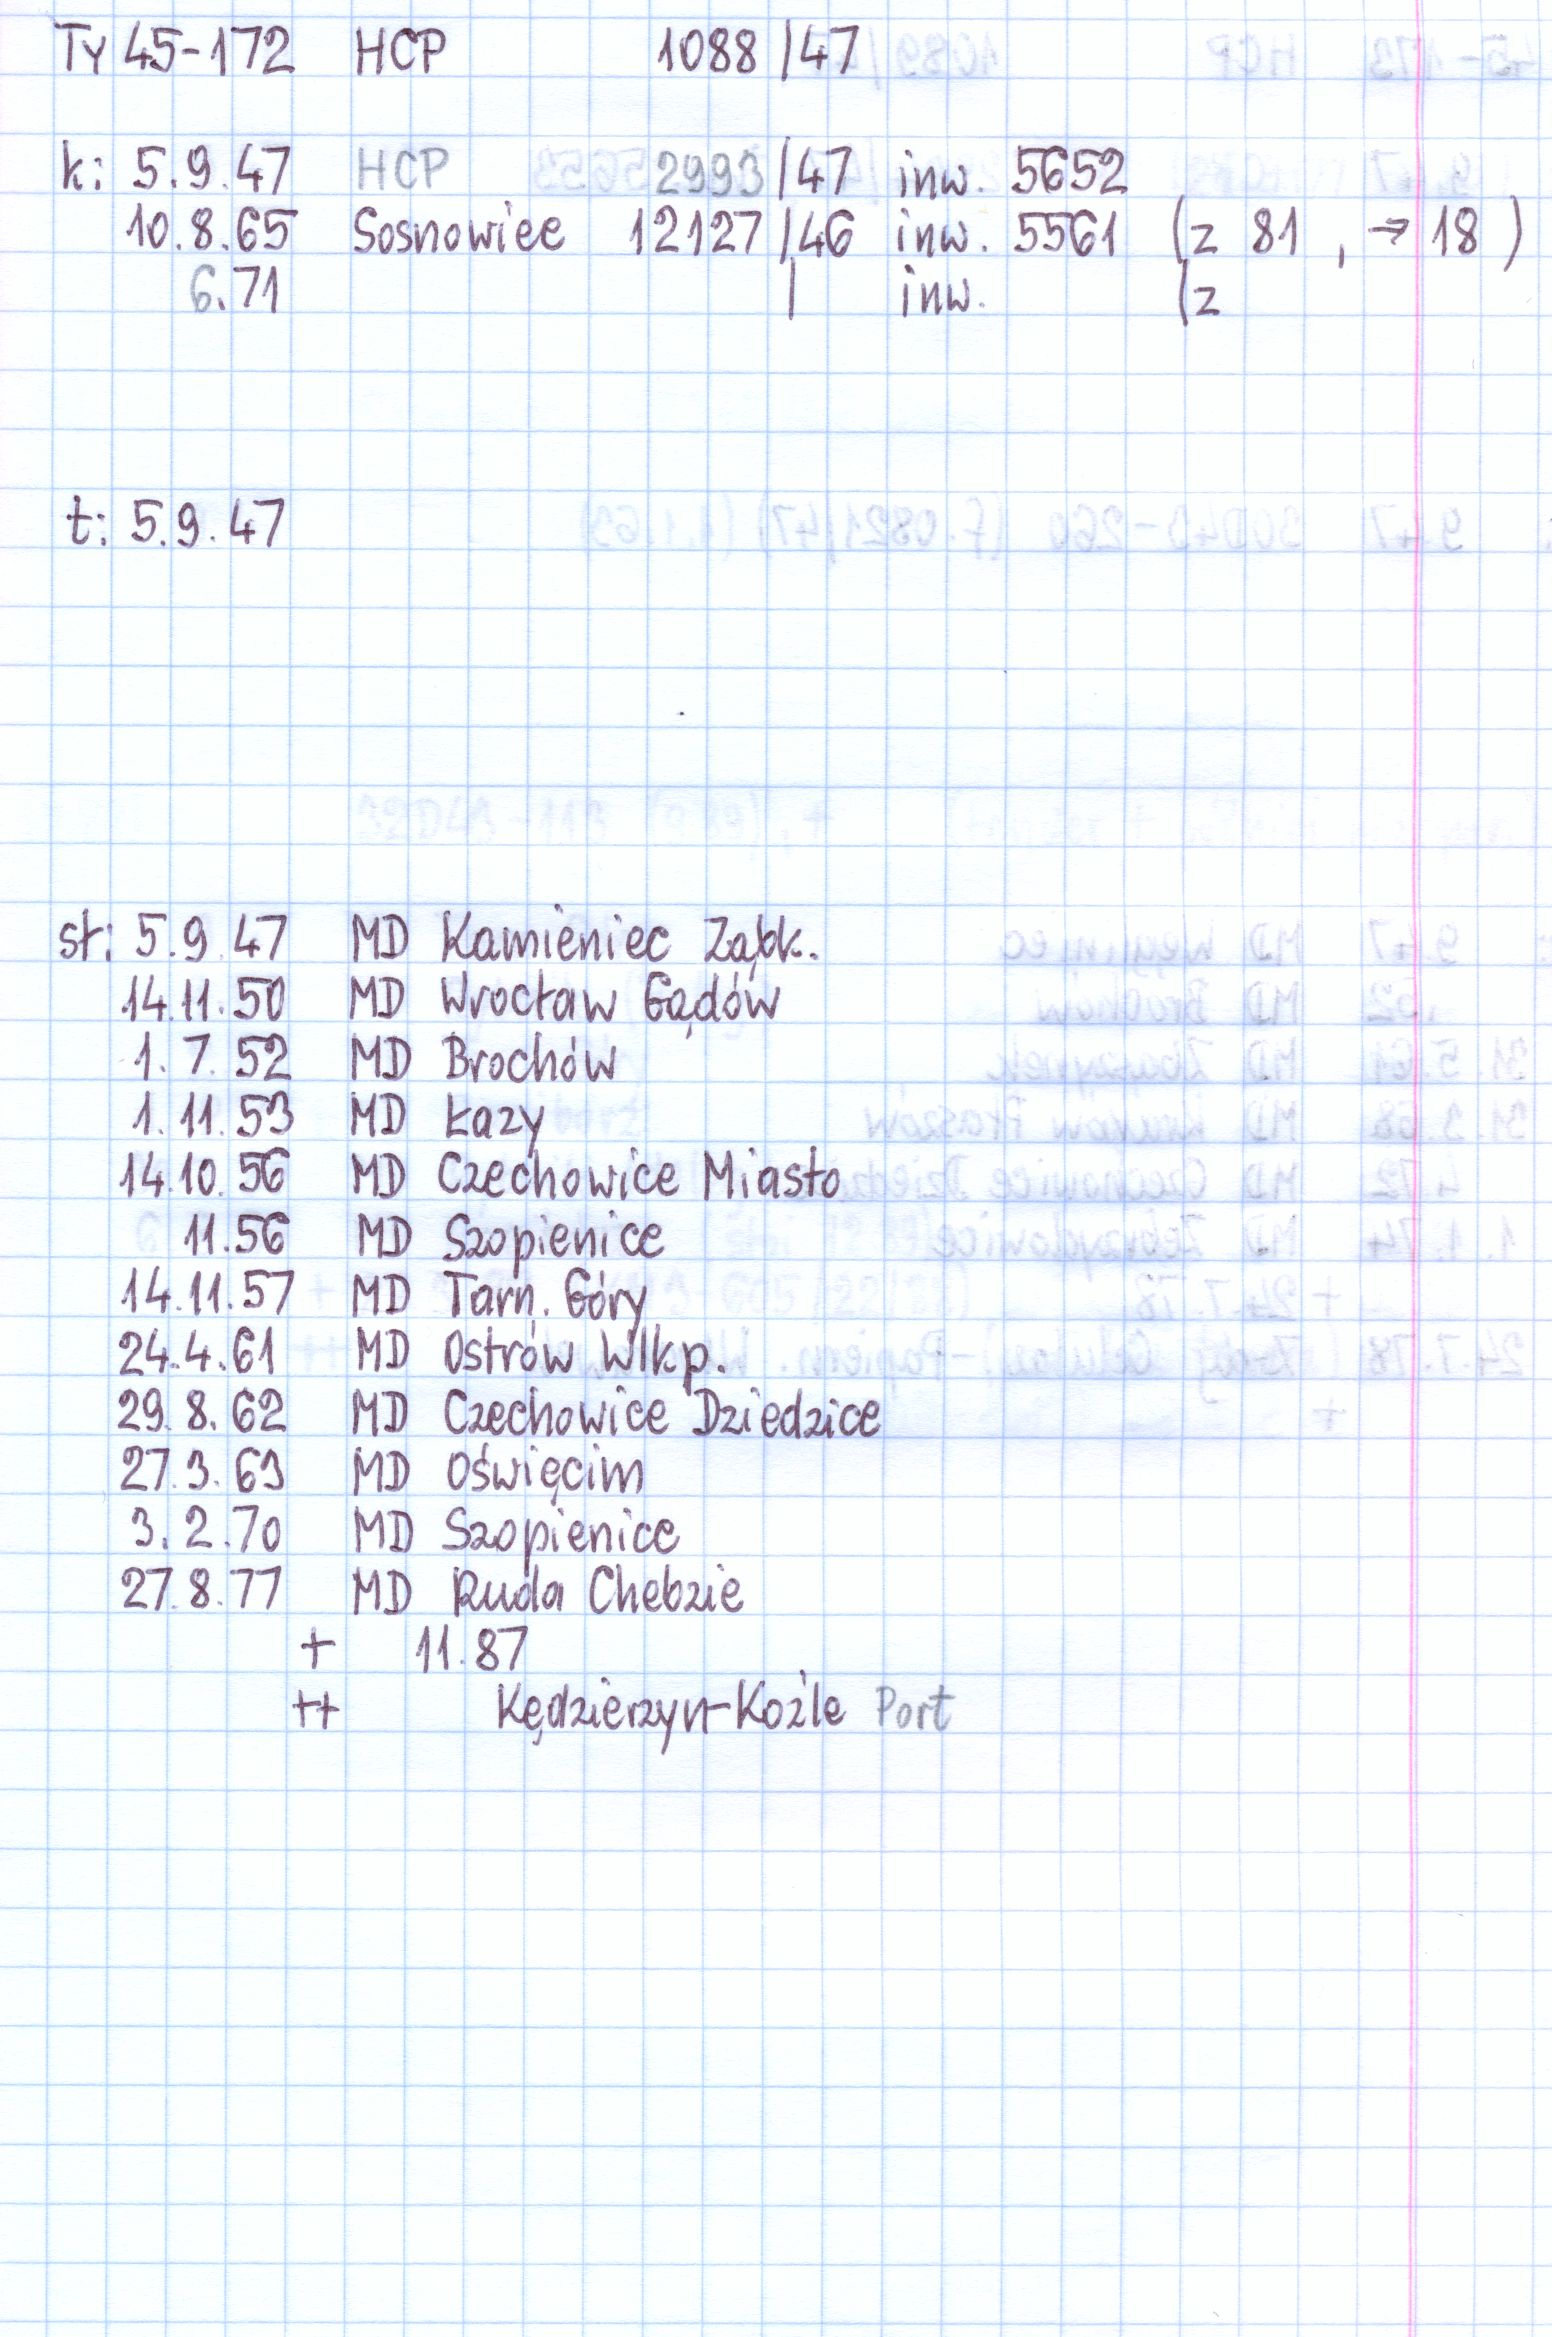 Ty 45-172 HCP 1088/47
k: 5.9.47 HCP 2993/47 inw. 5652
10.8.65 Sosnowiec 12127/46 inw. 5561 (z 81 , → 18 )
6.71 / inw. (z
t: 5.9.47
st: 5.9.47 MD Kamieniec Ząbk.
14.11.50 MD Wrocław Gądów
1.7.52 MD Brochów
1.11.53 MD Łazy
14.10.56 MD Czechowice Miasto
11.56 MD Szopienice
14.11.57 MD Tarn. Góry
24.4.61 MD Ostrów Wlkp.
29.8.62 MD Czechowice Dziedzice
27.3.63 MD Oświęcim
3.2.70 MD Szopienice
27.8.77 MD Ruda Chebzie
+ 11.87
++ Kędzierzyn-Koźle Port